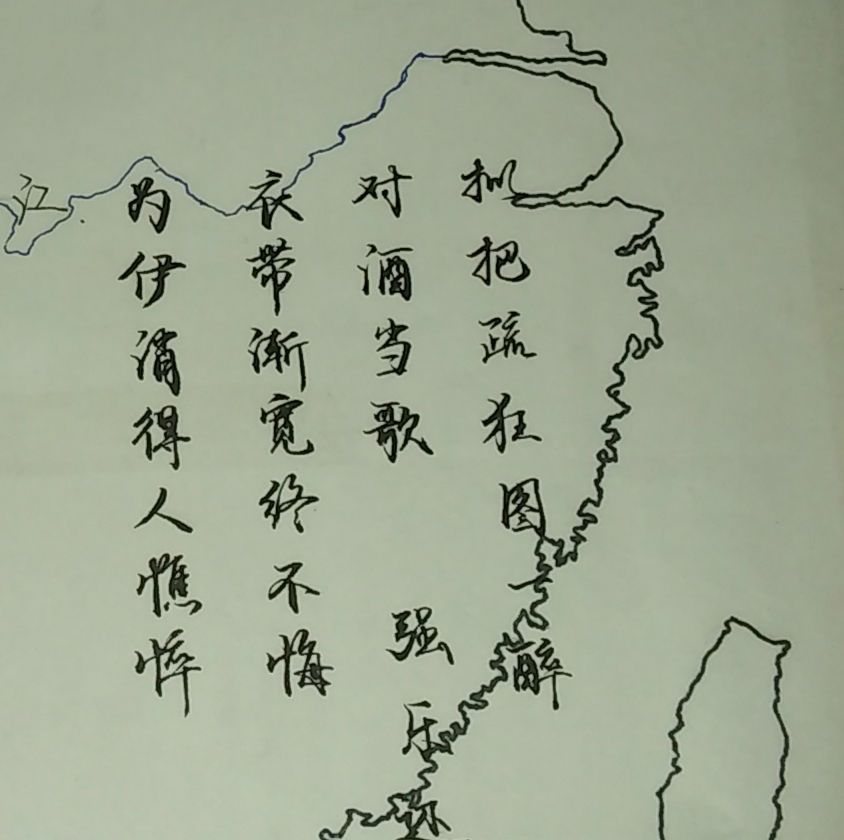 拟把疏狂图一醉
对酒当歌
强乐
衣带渐宽终不悔
为伊消得人憔悴
江